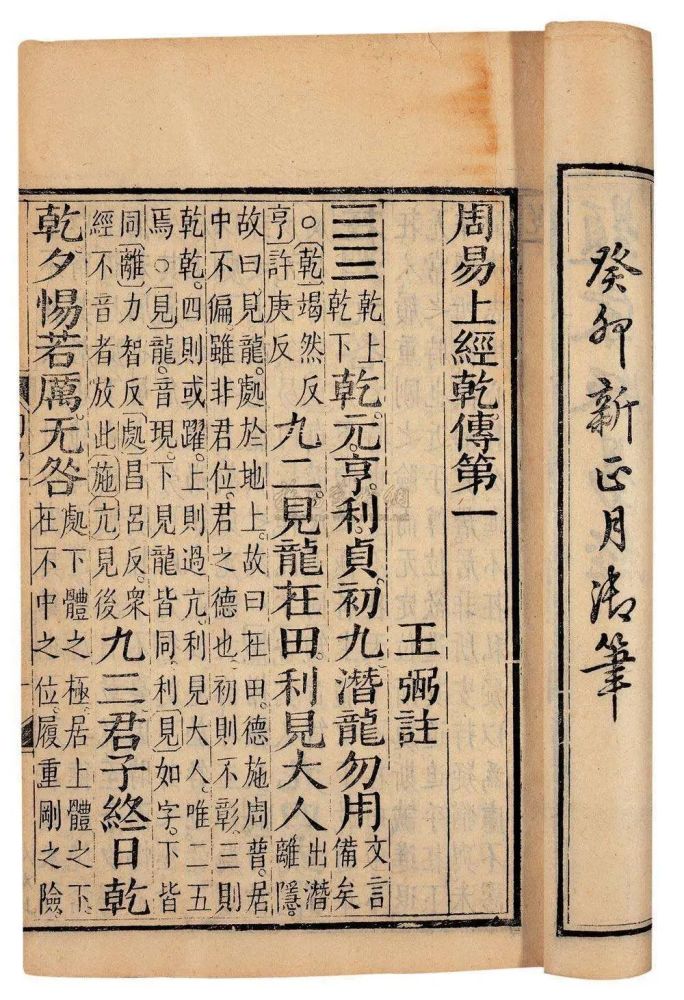 癸卯新正月御筆
周易上經乾傳第一
王弼註
☰☰乾上乾下乾。元亨。利貞。初九。潛龍勿用文言備矣
○乾竭然反亨許庚反九二。見龍在田。利見大人出潛離隱。
故曰見龍。處於地上。故曰在田。德施周普。居
中不偏。雖非君位。君之德也。初則不彰。三則
乾乾。四則或躍。上則過亢。利見大人。唯二五
焉。○見龍。音現。下見龍皆同。利見如字。下皆
同離力智反處昌呂反。衆經不音者放此施亢見後九三君子終日乾
乾夕惕若厲。无咎處下體之極。居上體之下。在不中之位。履重剛之險。